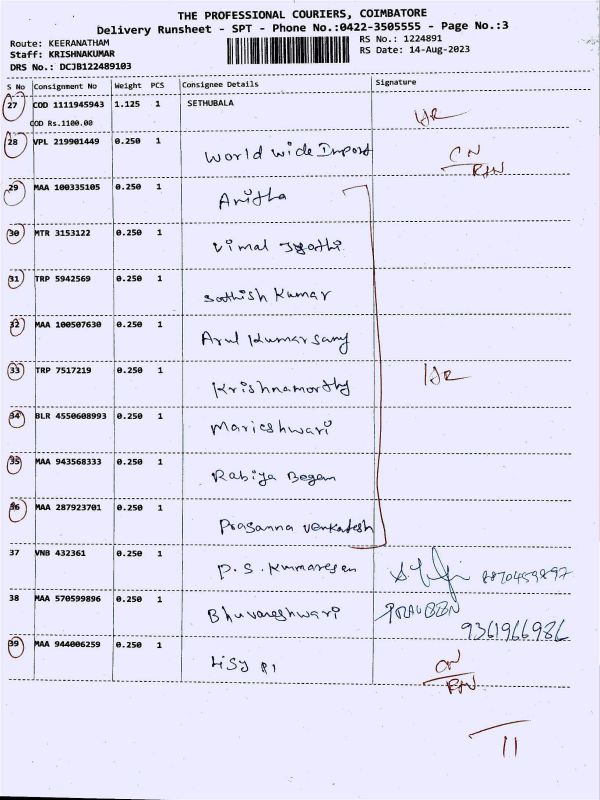 THE PROFESSIONAL COURIERS, COIMBATORE
Delivery Runsheet - SPT - Phone No.:0422-3505555 - Page No.:3
Route: KEERANATHAM RS No.: 1224891
Staff: KRISHNAKUMAR RS Date: 14-Aug-2023
DRS No.: DCJB122489103
S No Consignment No Weight PCS Consignee Details Signature
27 COD 1111945943 1.125 1 SETHUBALA
COD Rs.1100.00
28 VPL 219901449 0.250 1 World Wide Import
29 MAA 100335105 0.250 1 Anitha
30 MTR 3153122 0.250 1 Vimal Jyothi
31 TRP 5942569 0.250 1 Sathish Kumar
32 MAA 100507630 0.250 1 Arul Kumarsamy
33 TRP 7517219 0.250 1 Krishnamorthy
34 BLR 4550608993 0.250 1 Marieshwari
35 MAA 943568333 0.250 1 Rabiya Began
36 MAA 287923701 0.250 1 Prasanna Venkatesh
37 VNB 432361 0.250 1 P.S. Kumaresan 8870459897
38 MAA 570599896 0.250 1 Bhuvaneshwari PRAVEEN
9361966986
39 MAA 944006259 0.250 1 Lisy
11